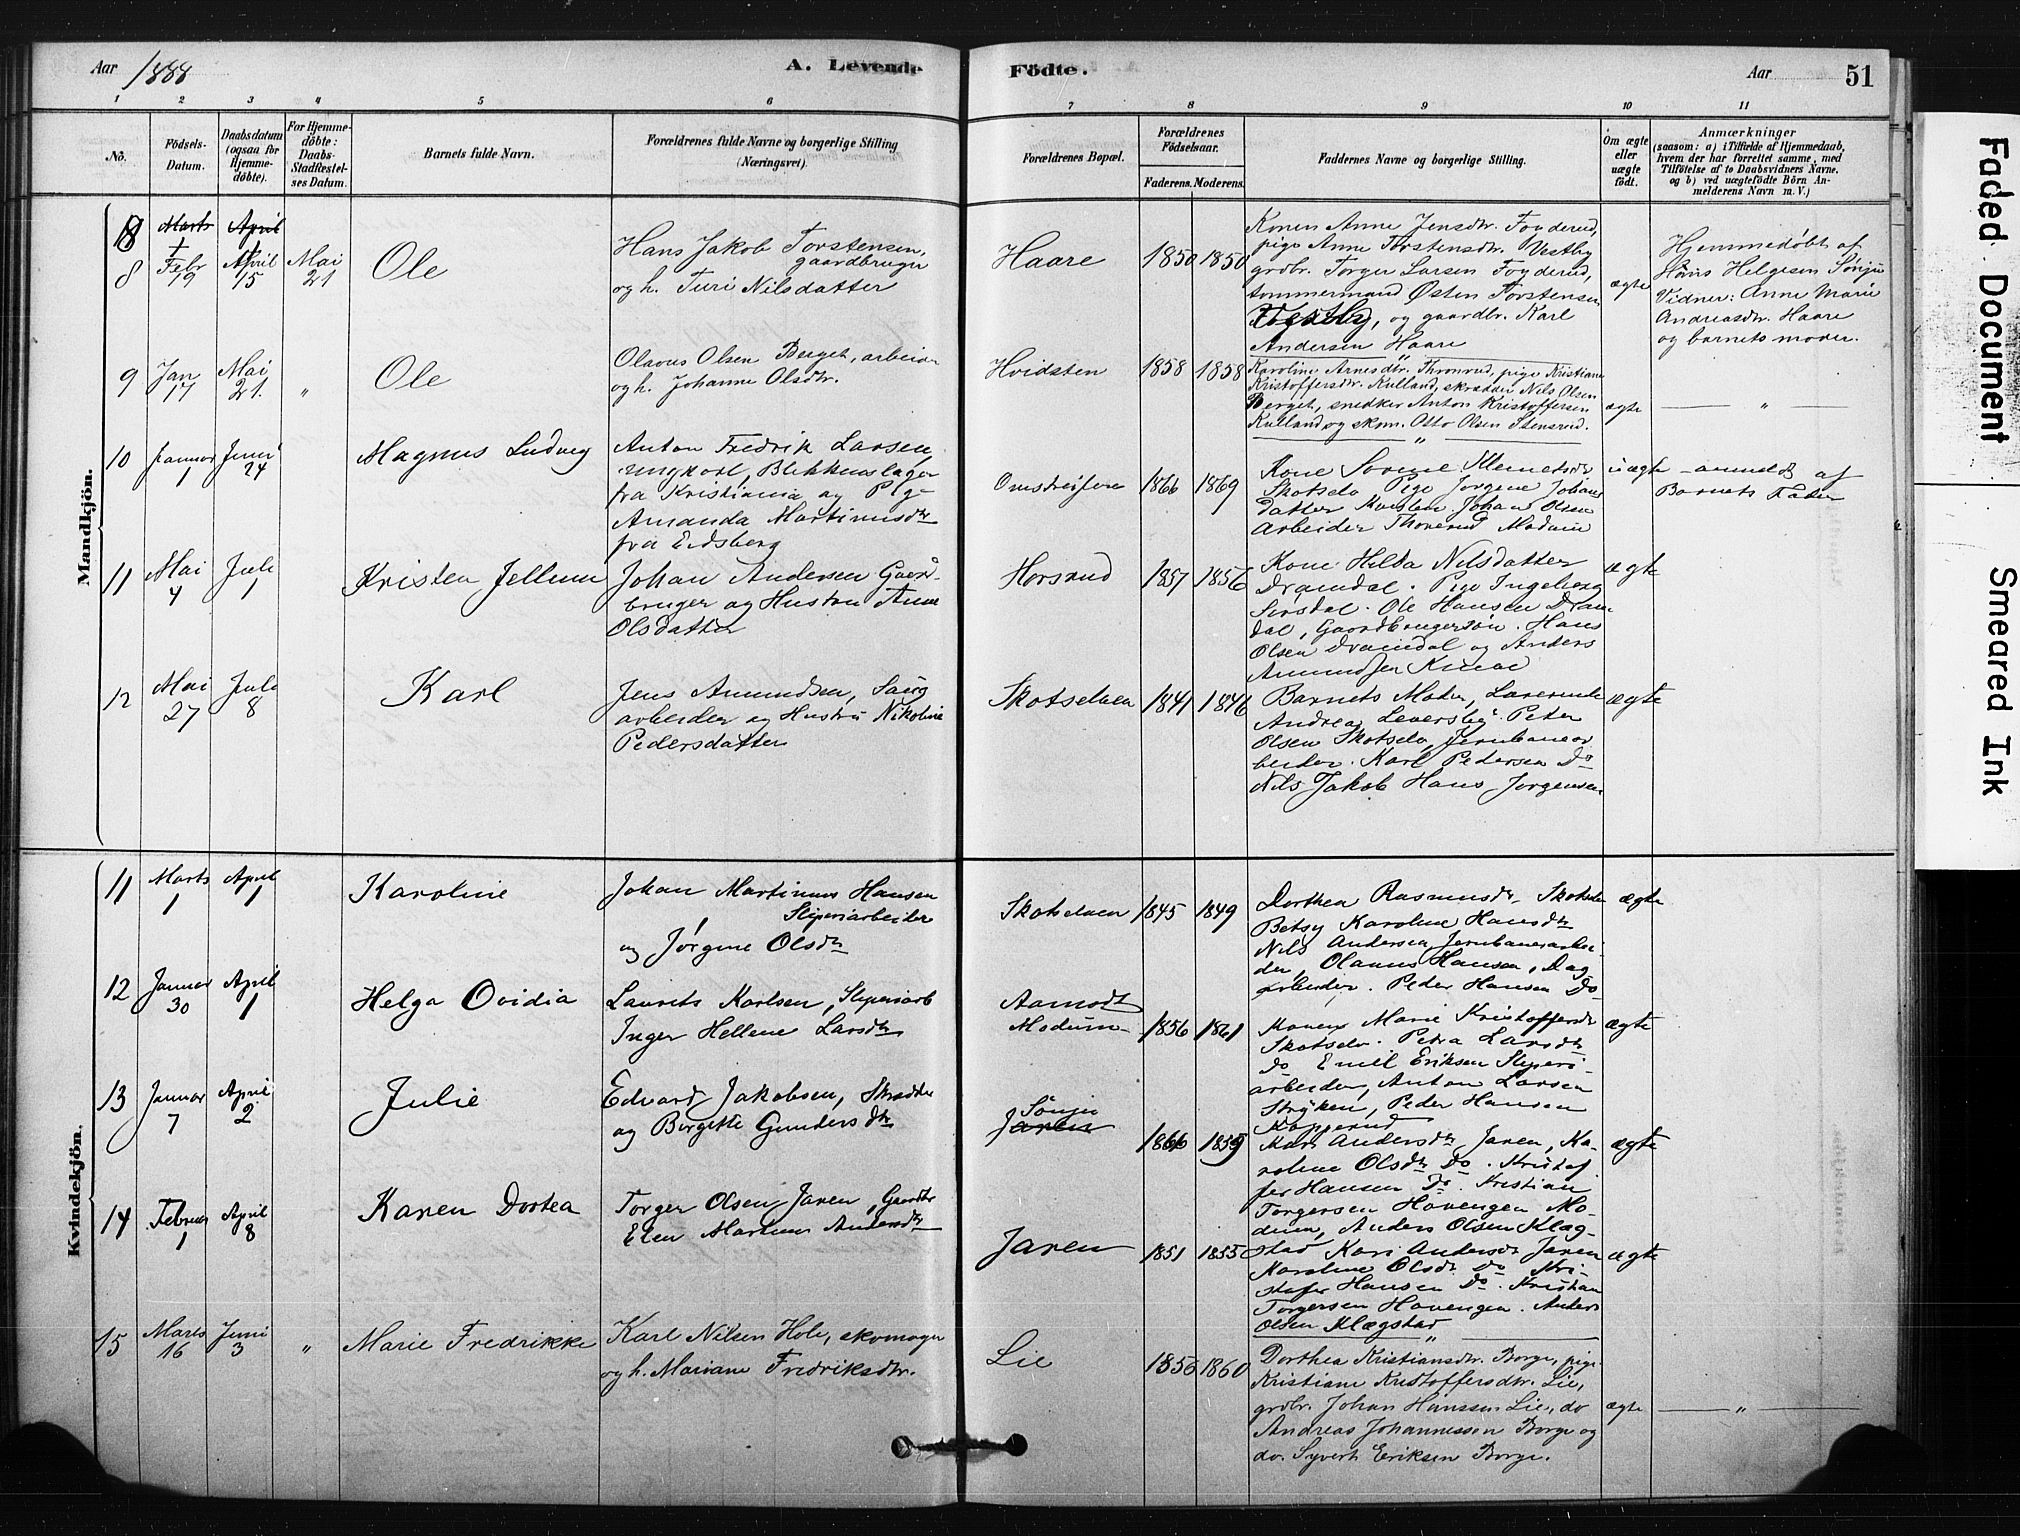 Aar 1888
A. Levende Födte.
Aar 51
1 2 3 4 5 6 7 8 9 10 11
No.
Födsels-Datum.
Daabsdatum (ogsaa for Hjemme-döbte).
For Hjemme-döbte: Daabs-Stadfæstel-ses Datum.
Barnets fulde Navn.
Forældrenes fulde Navne og borgerlige Stilling (Næringsvei).
Forældrenes Bopæl.
Forældrenes Födselsaar.
Faderens. Moderens.
Faddernes Navne og borgerlige Stilling.
Om ægte eller uægte födt.
Anmærkninger
(saasom: a) i Tilfælde af Hjemmedaab, hvem der har forrettet samme, med Tilföielse af to Daabsvidners Navne, og b) ved uægtefödte Börn An-melderens Navn m. V.)
Mandkjön.
Marts April
8 Febr 19 April 15 Mai 21
Ole
Hans Jakob Torstensen,
gaardbruger
og h. Turi Nilsdatter
Haare
1850 1850
Konen Anne Jensdtr. Foyderud,
pige Anne Torstensdtr. Vestby
grdbr. Torger Larsen Foyderud,
tommermand Østen Torstensen
Vestby, og gaardbr. Karl
Andersen Haare
ægte
Hjemmedøbt af
Helgesen Sönju
Vidner: Anne Marie
Andreasdtr. Haare
og barnets moder.
9 Jan 17 Mai 21. "
Ole
Olavus Olsen Berget, arbeider
og h. Johanne Olsdtr.
Hvidsten
1858 1858
Karoline Arnesdtr. Thronrud, pige Kristiane
Kristoffersdtr. Kulland, skrædder Nils Olsen
Berget, snedker Anton Kristoffersen
Kulland og skom. Otto Olsen Stensrud.
ægte
"
10 Januar 1 Juni 24
Magnus Ludvig
Anton Fredrik Larsen
ungkarl, Blikkenslager
fra Kristiania og Pige
Amanda Martinusdtr
fra Eidsberg
1866 1869
Kone Sorine Klemetsdtr
Skotselv Pige Jorgene Johans
datter Johan Olsen
Arbeider Thorerud Modum
uægte
anmeldt af
Barnets Fader
11 Mai 4 Juli 1
Kristen Jellum
Johan Andersen Gaard-
bruger og Hustru Anne
Olsdatter
Horsrud
1857 1856
Kone Hilda Nilsdatter
Dramdal. Pige Ingeborg
Sirsdal. Ole Hansen Dram-
dal, Gaardbrugersön. Hans
Olsen Dramdal og Anders
Amundsen
ægte
12 Mai 27 Juli 8
Karl
Jens Amundsen, Saug
arbeider og Hustru Nikoline
Pedersdatter
Skotselven
1841 1846
Barnets Moder,
Andrea Leversby. Peter
Olsen Skotselv, Jernbanear
beider. Karl Pedersen Do
Nils Jakob Hans Jorgensen
ægte
Kvindekjön.
11 Marts 1 April 1
Karoline
Johan Martinus Hansen
Sliperiarbeider
og Jörgine Olsdtr
Skotselven
1845 1849
Dorthea Rasmusdtr Skotselv
Betsy Karoline Hansdtr
Nils Andersen Jernbanearbei-
der, Olaves Hansen, Dag
arbeider. Peder Hansen Do
ægte
12 Januar 30 April 1
Helga Ovidia
Laurits Karlsen, Sliperiarb
Inger Hellene Larsdtr
Aamodt
Modum
1856 1861
Maren Marie Kristoffersdtr
Skotselv. Petra Larsdtr
Do Emil Eriksen Sliperi-
arbeider, Anton Larsen
Stryken, Peder Hansen
Kopperud
ægte
13 Januar 7 April 2
Julie
Edvard Jakobsen, Skrædder
og Birgitte Gundersdtr
Sönju
Jaren
1866 1859
Mari Andersdtr Jaren, Ka-
roline Olsdtr Do. Kristof
fer Hansen Do. Kristian
Torgersen Hovengen Mo-
dum, Anders Olsen Klæg-
stad
ægte
14 Februar 1 April 8
Karen Dortea
Torger Olsen Jaren, Gaardbr
Elen Martinus Andersdtr
Jaren
1851 1855
Kari Andersdtr Jaren
Karoline Olsdtr Do Kri-
stofer Hansen Do. Kristian
Torgersen Hovengen. Anders
Olsen Klægstad
ægte
15 Marts 16 Juni 3 "
Marie Fredrikke
Karl Nilsen Hole, skomager
og h. Mariane Fredriksdtr.
Lie
1856 1860
Dorthea Kristiansdtr. Borge, pige
Kristiane Kristoffersdtr. Lie,
grdbr. Johan Hanssen Lie, do
Andreas Johannessen Borge og
do. Syvert Eriksen Borge.
ægte
"
Faded Document
Smeared Ink